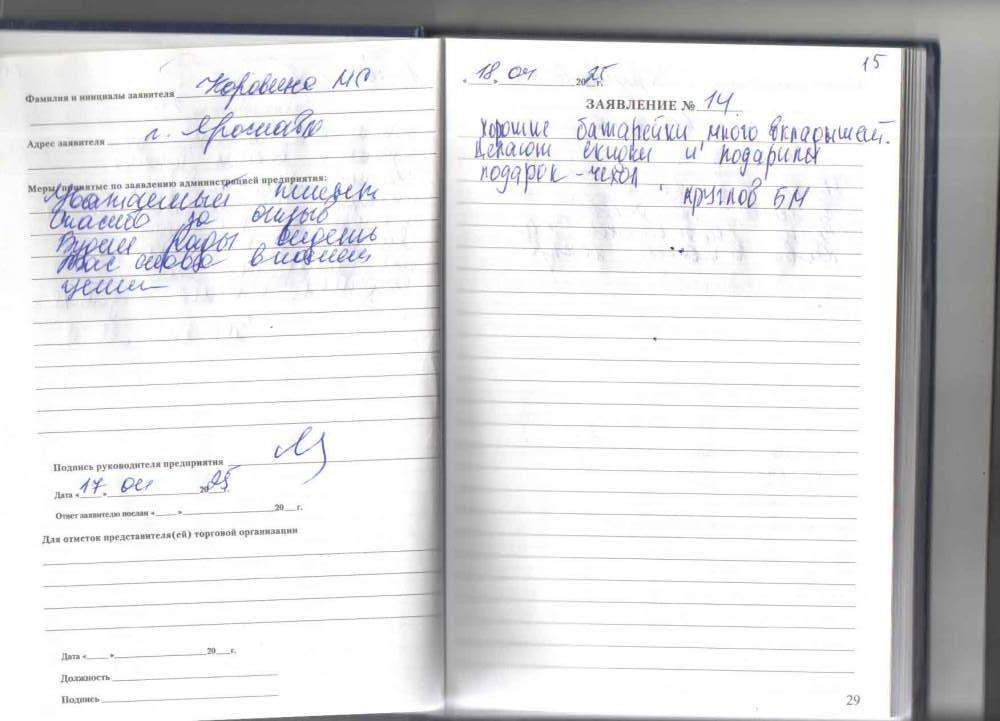 Фамилия и инициалы заявителя Коровина МС
Адрес заявителя г. Ярославль
Меры принятые по заявлению администрацией предприятия:
Уважаемый клиент
Спасибо за отзыв
Будем рады видеть
Вас снова в нашем
Подпись руководителя предприятия
Дата « 17 » 04 20 25
Ответ заявителю послан « » 20 г.
Для отметок представителя(ей) торговой организации
Дата « » 20 г.
Должность
Подпись
15
« 18 » 04 20 25 г.
ЗАЯВЛЕНИЕ № 14
хорошие батарейки много вкладышей.
Делают скидки и подарили
подарок - чехол.
Круглов БМ
29